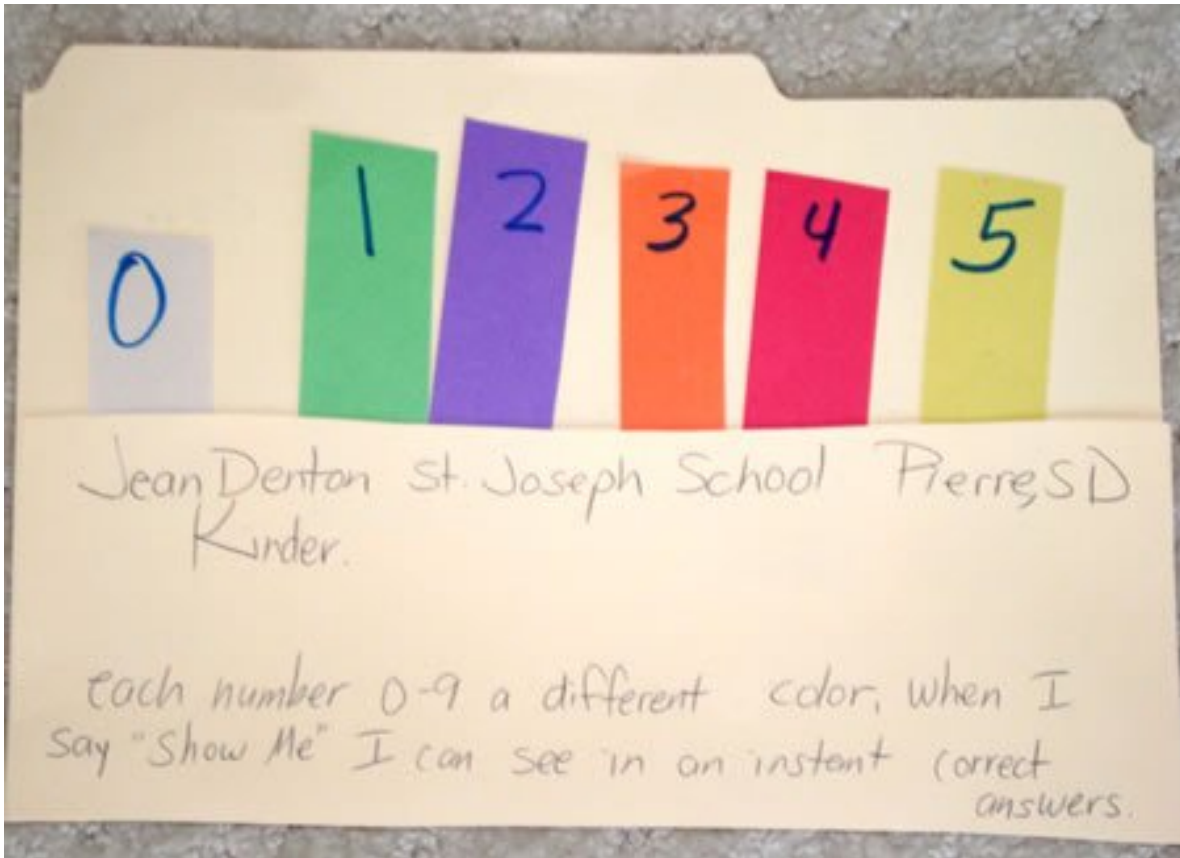 0 1 2 3 4 5
Jean Denton St. Joseph School Pierre, SD
Kinder.
each number 0-9 a different color, when I
say "Show Me" I can see in an instant correct
answers.